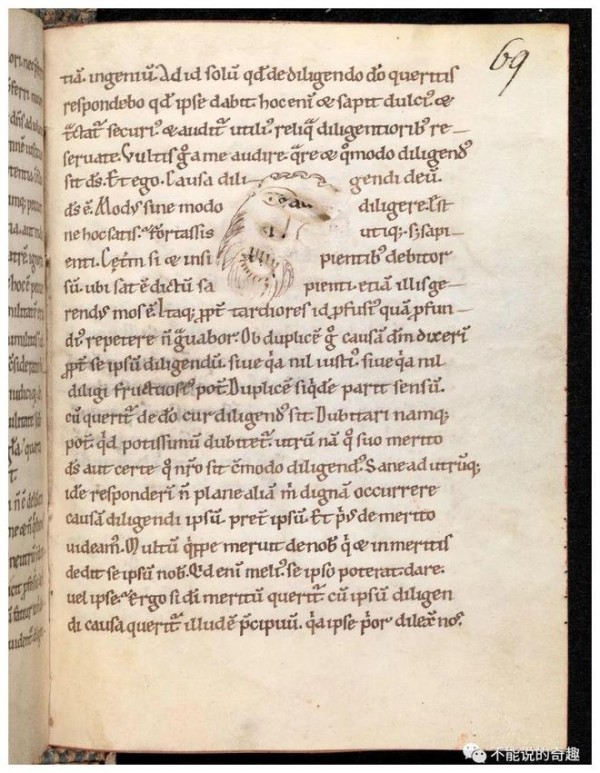 69
tiā. ingeniū. Ad id solū qđ de diligendo đo queritis
respondebo qđ ipse dabit. hoc eni᷒ & sapit dulci᷒. &
tͣctat᷒ securi᷒. & audit᷒ utili᷒. reliq̄ diligentiorib᷒ re-
seruate. Vultis g̊ a me audire. q̄re & q̊modo diligend᷒
sit đs. Et ego. Causa dili gendi deū.
đs ē. Mod᷒ sine modo diligere. Est
ne hoc satis. Fortassis utiq;. s; sapi-
enti. Cet̄m si & insi pientib᷒ debitor
sū. ubi sat ē dictū sa pienti. etiā illis ge-
rend᷒ mos ē. Itaq;. ꝓpt̄ tardiores id ꝓfusi᷒ quā ꝓfun-
di᷒ repetere ñ g̃uabor. Ob duplicē g̊ causā đm dixeri᷒
ꝓpt̄ se ipsū diligendū. siue q̇a nil iusti᷒. siue q̇a nil
diligi fructuosi᷒ pot̄. Duplicē siq̇de᷒ parit sensū.
cū querit᷒ de đo cur diligend᷒ sit. Dubitari namq;
pot̄. q̇d potissimū dubitet᷒. utrū nā q̊ suo merito
đs. aut certe q̊ nr̄o sit c̄modo diligend᷒. Sane ad utrūq;
idē responderi᷒. ñ plane aliā m̊ dignā occurrere
causā diligendi ipsū. pret̄ ipsū. Et p̊᷒ de merito
uideam᷒. Multū q̇ppe meruit de nob᷒. q̇ & inmeritis
dedit se ipsū nob᷒. Q̇d eni᷒ meli᷒ se ipso poterat dare.
uel ipse. Ergo si đi meritū querit᷒. cū ipsū diligen
di causa querit᷒. illud ē p̄cipuū. q̇a ipse p̊or dilex᷒ nos.
不能说的奇趣